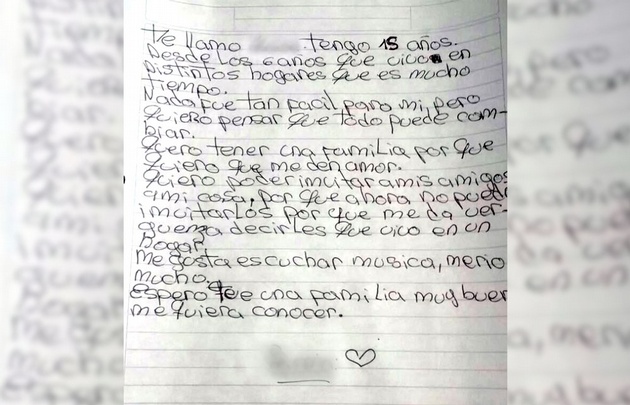 Te llamo tengo 15 años.
Desde los 6 años que vivo en
Distintos hogares que es mucho
Tiempo.
Nada fue tan facil para mi, pero
Quiero pensar que todo puede cam-
biar.
Quero tener una familia por que
Quiero que me den amor.
Quiero poder imvitar a mis amigos
a mi casa, por que ahora no puedo
imvitarlos por que me da ver-
guenza decirles que vivo en un
hogar.
me gusta escuchar musica, merio
mucho.
espero que una familia muy buen
me quiera conocer.